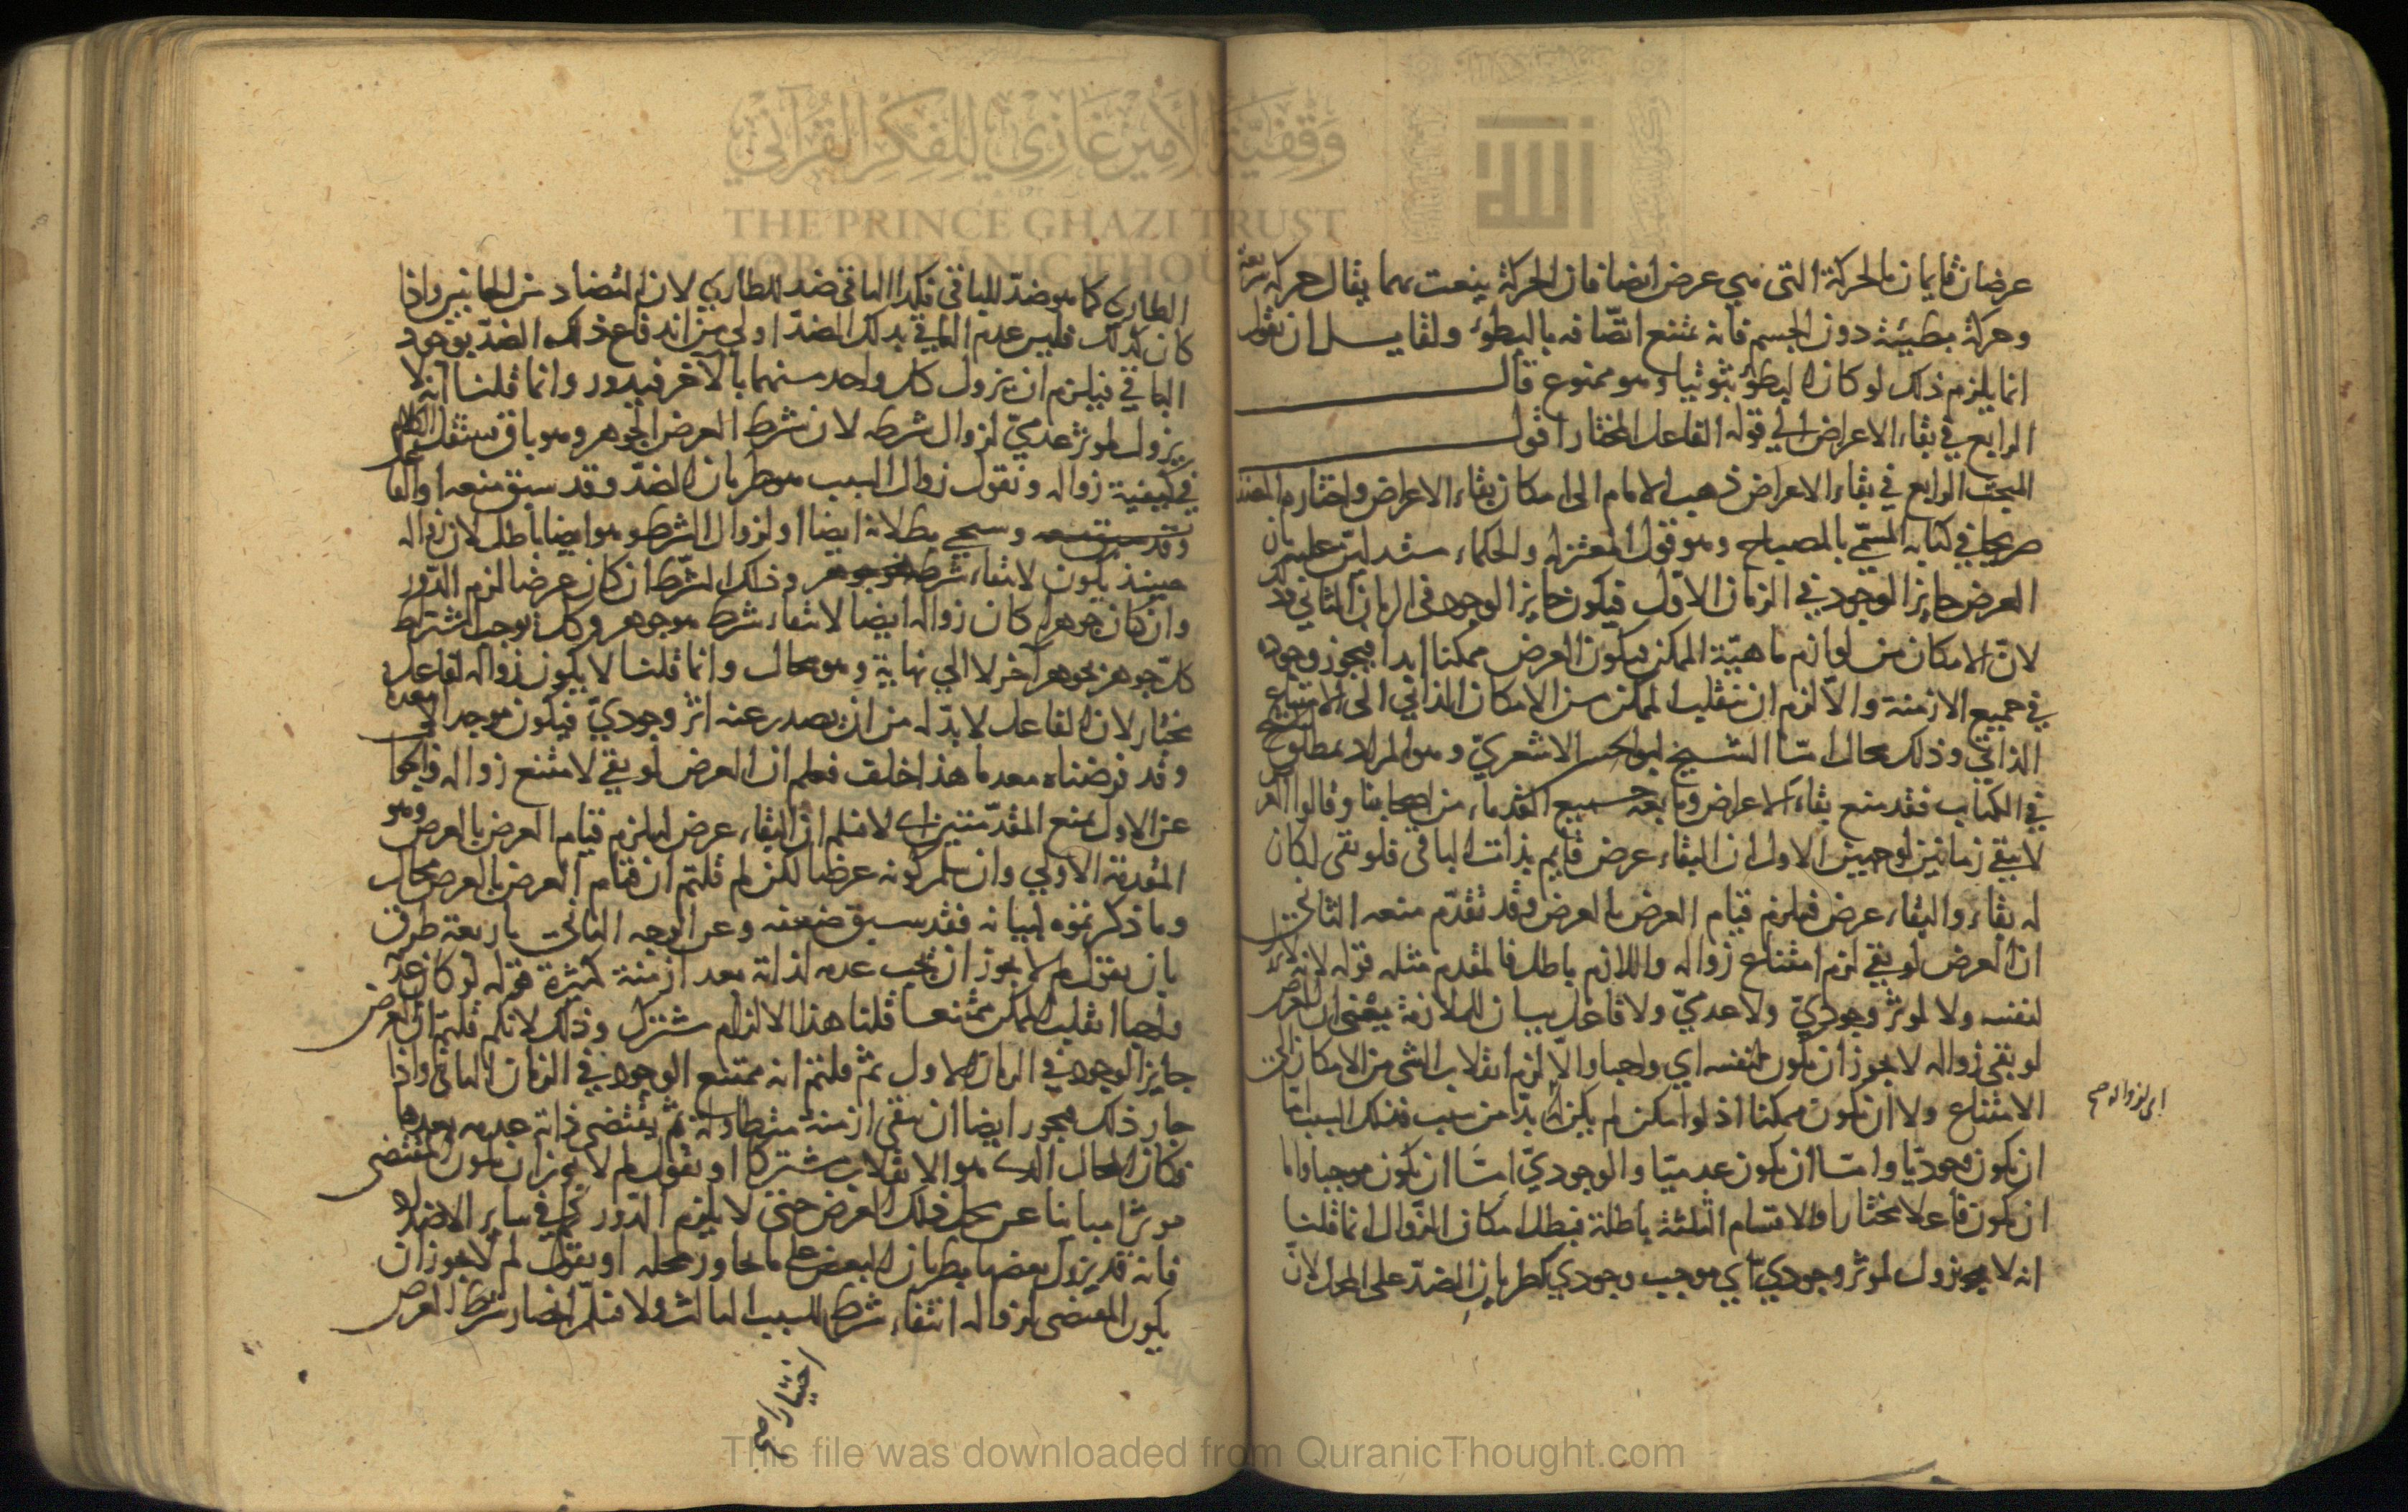 عرضان قايمان بالحركة التى هي عرض ايضا فان الحركة ينعت بهما يقال حركة سريعة
وحركة بطيئة دون الجسم فانه يمتنع اتّصافه بالبطؤ ولقايل ان يقول
انما يلزم ذلك لو كان البطؤ ثبوتيا وهو ممنوع قال
الرابع في بقاء الاعراض الي قوله الفاعل المختار اقول
المبحث الرابع في بقاء الاعراض ذهب الامام الى امكان بقاء الاعراض واختاره المصنف
صريحا في كتابه المسمّي بالمصباح وهو قول المعتزلة والحكماء مستدلين عليه بان
العرض جايز الوجود في الزمان الاوّل فيكون جايز الوجود فى الزمان الثاني
لانّ الامكان من لوازم ماهيّة الممكن فيكون العرض ممكنا ابدا فيجوز وجوده
في جميع الازمنة والّا لزم ان ينقلب الممكن من الامكان الذاتي الى الامتناع
الذاتي وذلك محال امّا الشيخ ابو الحسن الاشعريّ وهو المراد بمطلق الشيخ
في الكتاب فقد منع بقاء الاعراض وتابعه جميع القدماء من اصحابنا وقالوا العرض
لا يبقي زمانين لوجهين الاول ان البقاء عرض قايم بذات الباقى فلو بقى لكان
له بقاء والبقاء عرض فيلزم قيام العرض بالعرض وقد تقدّم منعه الثاني
ان العرض لو بقي لزم امتناع زواله واللازم باطل فالمقدم مثله قوله لانه لا يزول
لنفسه ولا لمؤثر وجوديّ ولا عدميّ ولا فاعل بيان للملازمة يعنى ان العرض
لو بقى زواله لا يجوز ان يكون لنفسه اي واجبا والّا لزم انقلاب الشى من الامكان الى
الامتناع ولا ان يكون ممكنا اذ لو امكن لم يكن له بدّ من سبب فذلك السبب اما
اى لزواله صح
ان يكون وجوديّا وامّا ان يكون عدميّا والوجوديّ امّا ان يكون موجبا واما
ان يكون فاعلا مختارا والاقسام الثلثة باطلة فبطل امكان الزّوال انما قلنا
انه لا يزول لمؤثر وجودي اي موجب وجودي كطريان الضدّ على المحل لانّ
الطاري كما هو ضدّ للباقي فكذا الباقى ضد للطاري لان التضاد من الجانبين واذا
كان كذلك فليس عدم الباقي بذلك الضدّ اولي من اندفاع ذلك الضدّ بوجود
الباقي فيلزم ان يزول كل واحد منهما بالآخر فيدور وانما قلنا انه لا
يزول لمؤثر عدميّ لزوال شرطه لان شرط العرض الجوهر وهو باق سننقل الكلام
في كيفية زواله ونقول زوال السبب هو طريان الضدّ وقد سبق منعه او الفا
وسيجي بطلانه ايضا او لزوال الشرط وهو ايضا باطل لان زواله
حينئذ يكون لانتفاء شرط وذلك الشرط ان كان عرضا لزم الدّور
وان كان جوهرا كان زواله ايضا لانتفاء شرط هو جوهر وذلك يوجب اشتراط
كلّ جوهر بجوهر آخر لا الي نهاية وهو محال وانما قلنا لا يكون زواله لفاعل
مختار لان الفاعل لا بدّ له من ان يصدر عنه اثر وجوديّ فيكون موجدا
وقد فرضناه معدما هذا خلف فعلم ان العرض لو بقي لامتنع زواله والجواب
عن الاول بمنع المقدّمتين اى لا نسلم ان البقاء عرض ليلزم قيام العرض بالعرض وهو
المقدمة الاولي وان سلم كونه عرضا لكن لم قلتم ان قيام العرض بالعرض محال
وما ذكرتموه لبيانه فقد سبق ضعفه وعن الوجه الثانى باربعة طرق
بان نقول لم لا يجوز ان يجب عدمه لذاته بعد ازمنة كثيرة قوله لو كان عدمه
واجبا انقلب الممكن ممتنعا قلنا هذا الالزام مشترك وذلك لانكم قلتم ان العرض
جايز الوجود في الزمان الاول ثم قلتم انه ممتنع الوجود في الزمان الثانى واذا
جاز ذلك فيجوز ايضا ان يبقى ازمنة متطاولة ثم يقتضى ذاته عدمه بعدها
فكان المحال الذى هو الانقلاب مشتركا او نقول لم لا يجوز ان يكون المقتضى
مؤثرا مباينا عن محل ذلك العرض حتى لا يلزم الدّور كما في ساير الاضداد
فانه قد يزول بعضها بطريان البعض على ما يجاور محله او نقول لم لا يجوز ان
يكون المقتضى لزواله انتفاء شرط السبب الثالث ولا نسلّم انحصار شرط العرض